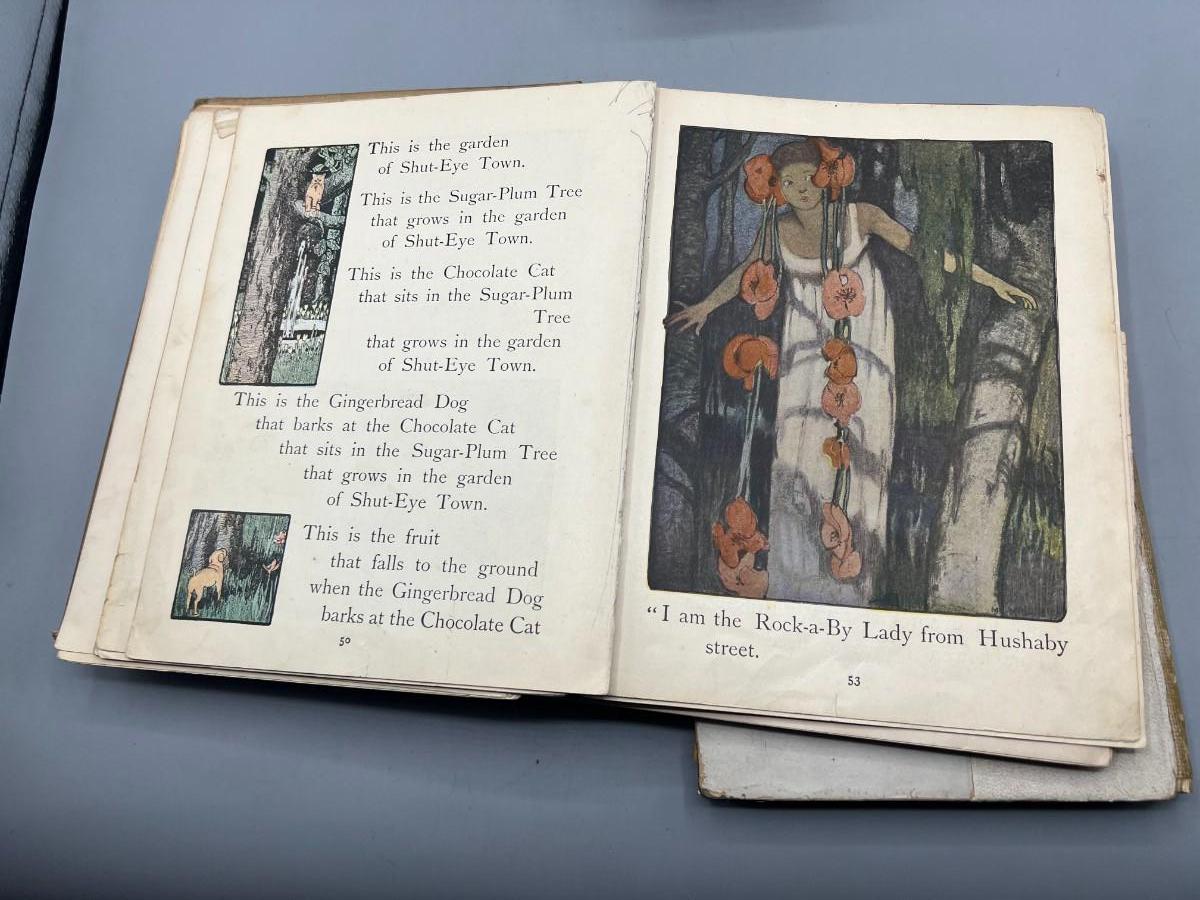 This is the garden
of Shut-Eye Town.
This is the Sugar-Plum Tree
that grows in the garden
of Shut-Eye Town.
This is the Chocolate Cat
that sits in the Sugar-Plum
Tree
that grows in the garden
of Shut-Eye Town.
This is the Gingerbread Dog
that barks at the Chocolate Cat
that sits in the Sugar-Plum Tree
that grows in the garden
of Shut-Eye Town.
This is the fruit
that falls to the ground
when the Gingerbread Dog
barks at the Chocolate Cat
50
"I am the Rock-a-By Lady from Hushaby
street.
53